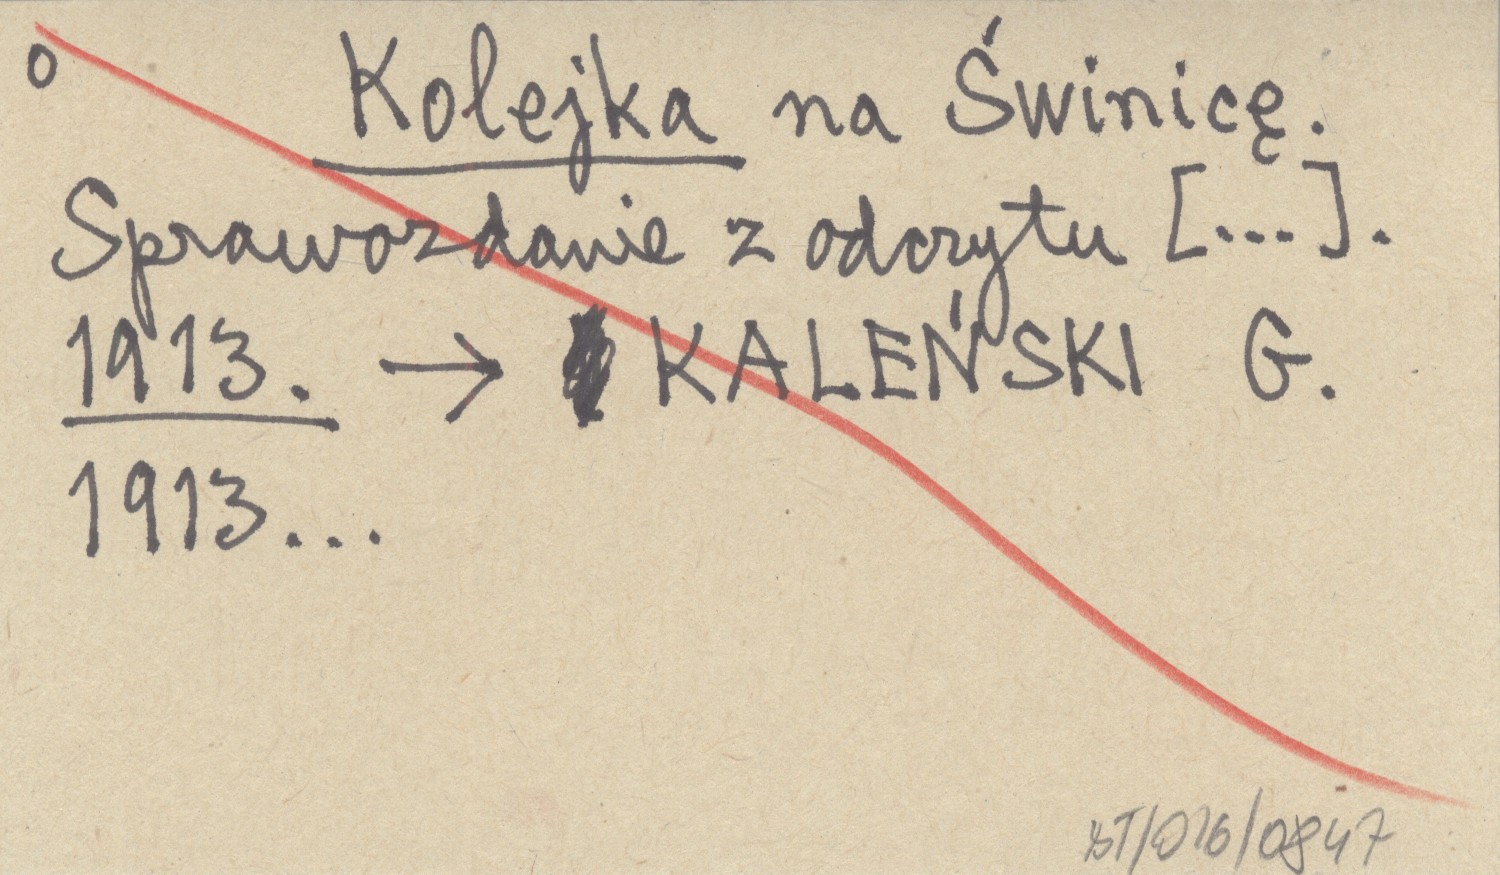 o Kolejka na Świnicę.
Sprawozdanie z odczytu [...].
1913. → KALEŃSKI G.
1913...
BT/026/0847